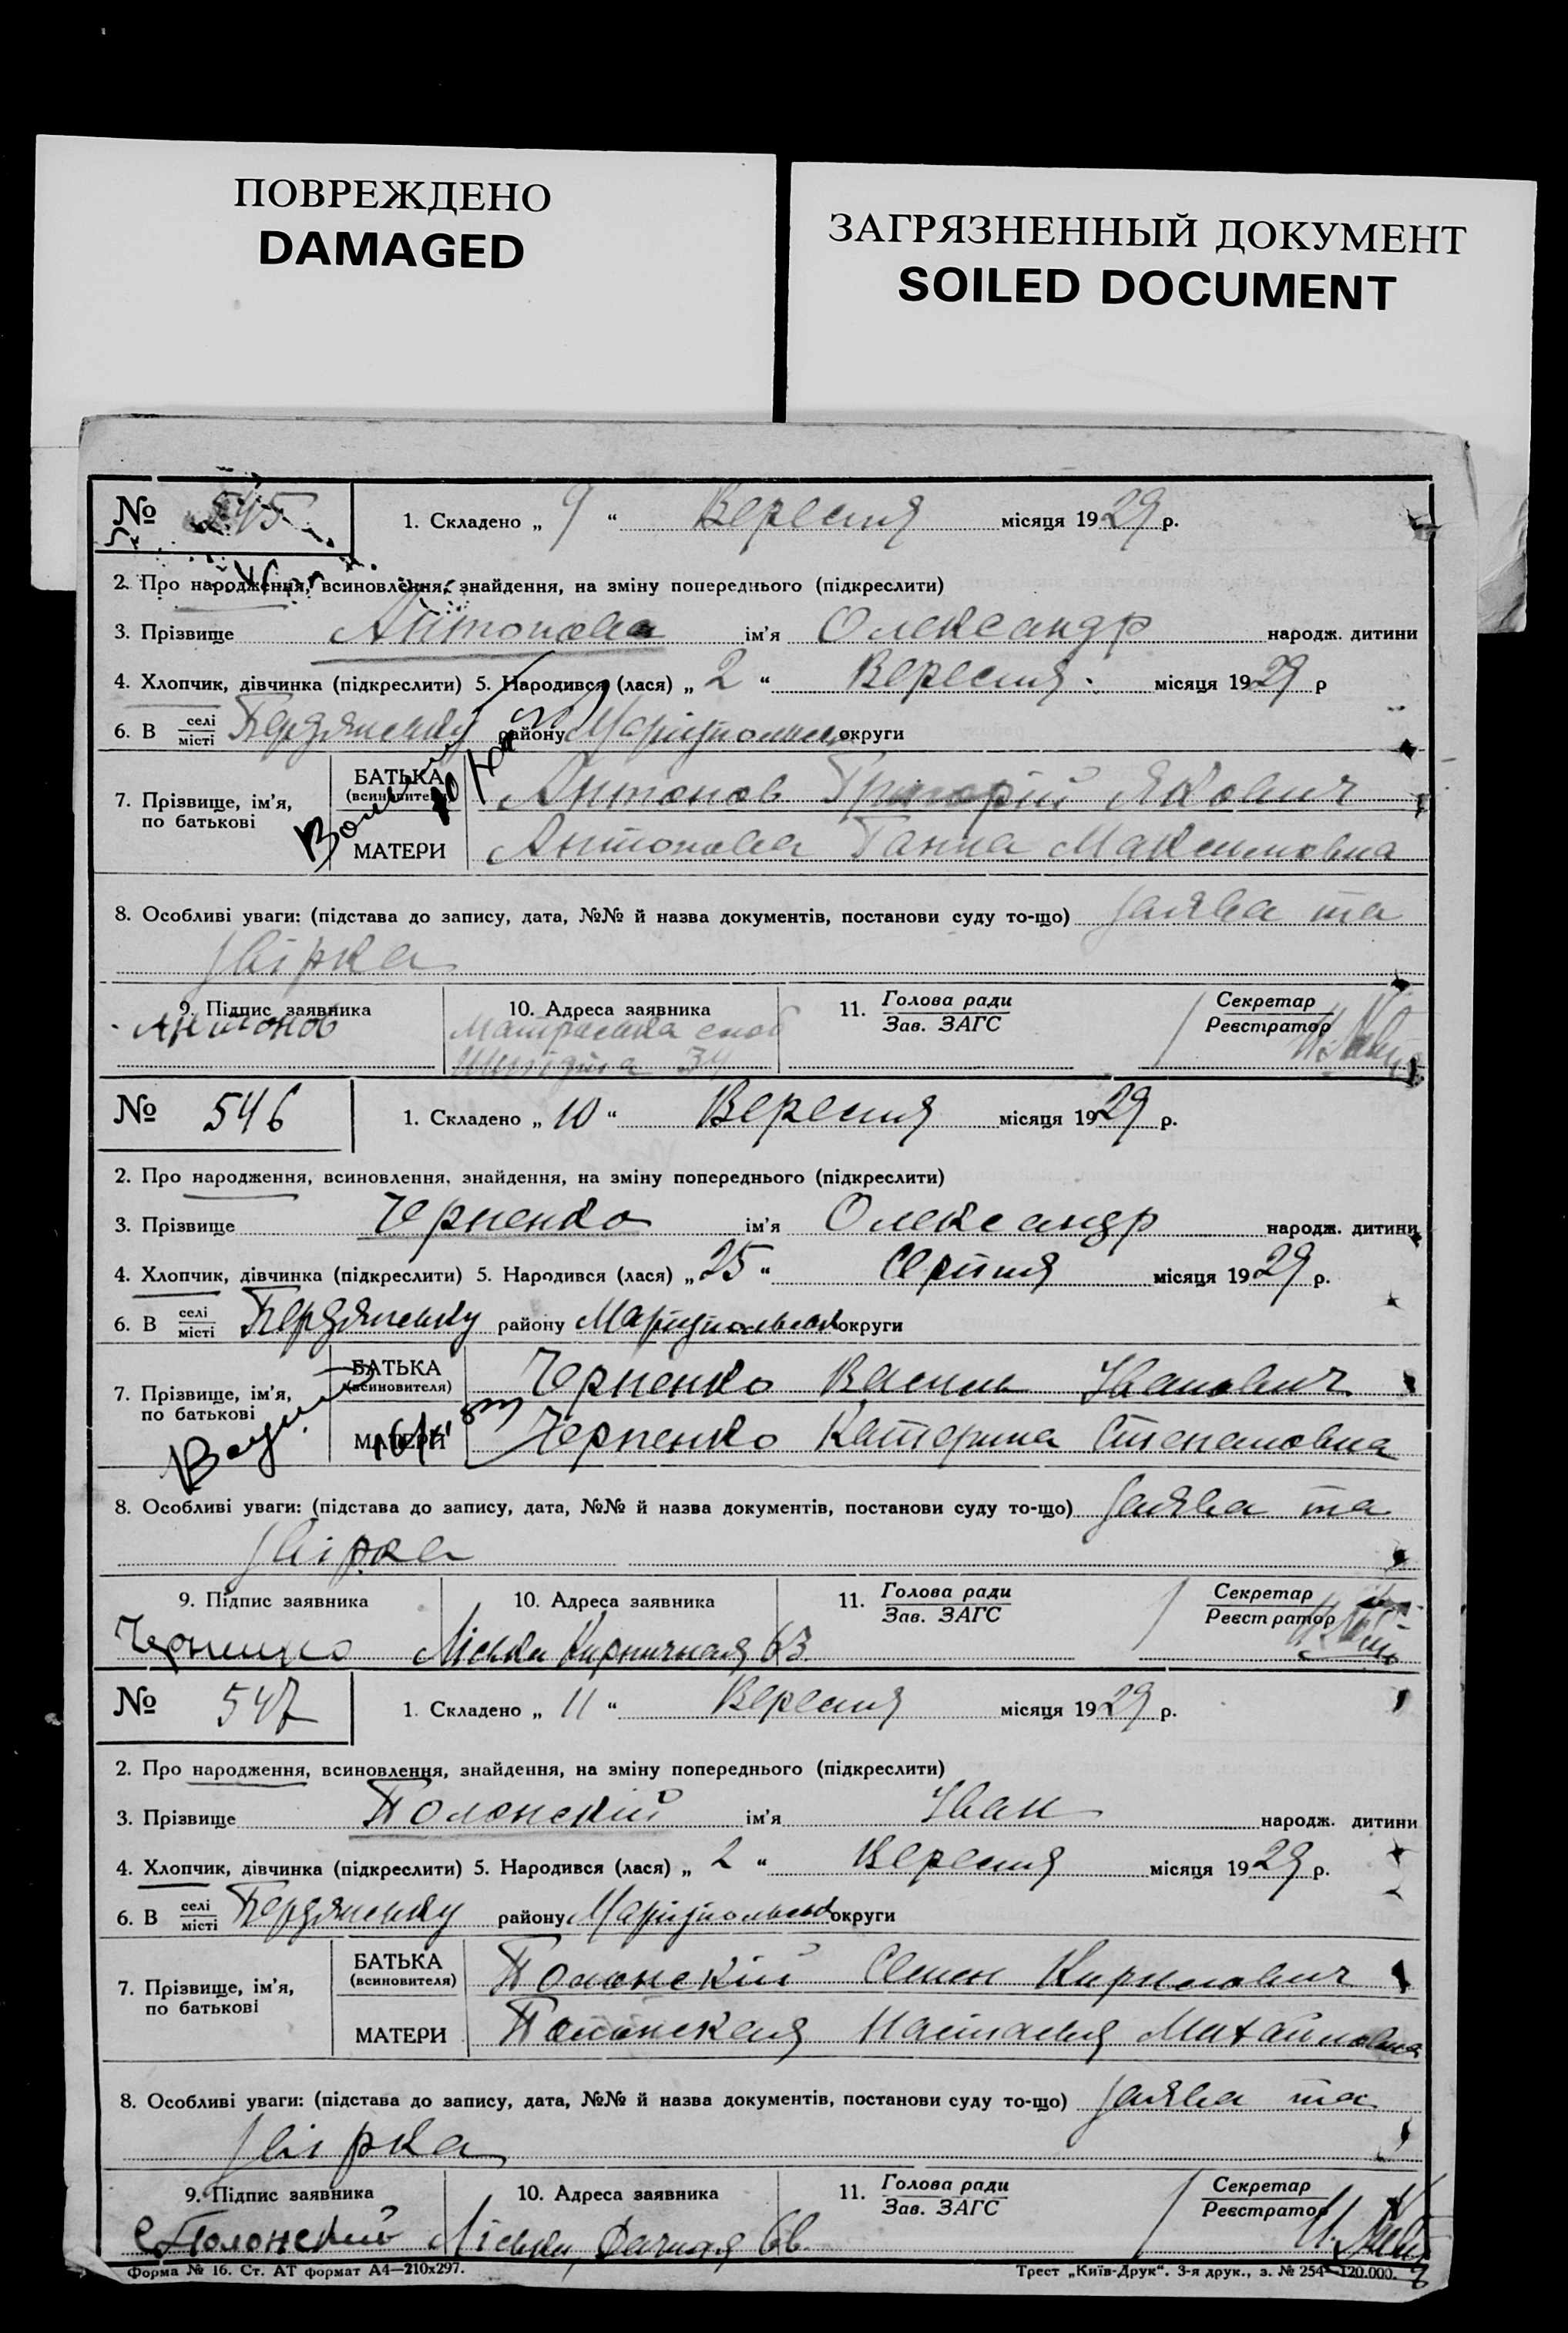 ПОВРЕЖДЕНО
DAMAGED
ЗАГРЯЗНЕННЫЙ ДОКУМЕНТ
SOILED DOCUMENT
№ 545
1. Складено „ 9 “ Вересня місяця 1929 р.
2. Про народження, всиновлення, знайдення, на зміну попереднього (підкреслити)
3. Прізвище Антонова ім'я Олександр народж. дитини
4. Хлопчик, дівчинка (підкреслити) 5. Народився (лася) „ 2 “ Вересня місяця 1929 р
6. В селі місті Бердянську району Маріюпольськ округи
7. Прізвище, ім'я, по батькові
БАТЬКА (всиновителя) Антонов Григорій Якович
МАТЕРИ Антонова Ганна Максимовна
8. Особливі уваги: (підстава до запису, дата, №№ й назва документів, постанови суду то-що) заява та
звірка
9. Підпис заявника 10. Адреса заявника 11. Голова ради Зав. ЗАГС Секретар Реєстратор
Антонов
34
№ 546
1. Складено „ 10 “ Вересня місяця 1929 р.
2. Про народження, всиновлення, знайдення, на зміну попереднього (підкреслити)
3. Прізвище Черненко ім'я Олександр народж. дитини
4. Хлопчик, дівчинка (підкреслити) 5. Народився (лася) „ 25 “ Серпня місяця 1929 р.
6. В селі місті Бердянську району Маріюпольськ округи
7. Прізвище, ім'я, по батькові
БАТЬКА (всиновителя) Черненко Василь Іванович
МАТЕРИ Черненко Катерина Степановна
8. Особливі уваги: (підстава до запису, дата, №№ й назва документів, постанови суду то-що) заява та
звірка
9. Підпис заявника 10. Адреса заявника 11. Голова ради Зав. ЗАГС Секретар Реєстратор
Черненко Ліськи Кирпичная 63
№ 547
1. Складено „ 11 “ Вересня місяця 1929 р.
2. Про народження, всиновлення, знайдення, на зміну попереднього (підкреслити)
3. Прізвище Полонскій ім'я Іван народж. дитини
4. Хлопчик, дівчинка (підкреслити) 5. Народився (лася) „ 2 “ Вересня місяця 1929 р.
6. В селі місті Бердянську району Маріюпольськ округи
7. Прізвище, ім'я, по батькові
БАТЬКА (всиновителя) Полонскій Семен Кирилович
МАТЕРИ Полонская Настасия Михайловна
8. Особливі уваги: (підстава до запису, дата, №№ й назва документів, постанови суду то-що) заява та
звірка
9. Підпис заявника 10. Адреса заявника 11. Голова ради Зав. ЗАГС Секретар Реєстратор
С Полонский Ліськи, Дачная
Форма № 16. Ст. АТ формат А4—210х297.
Трест „Київ-Друк“. 3-я друк., з. № 254—120.000.